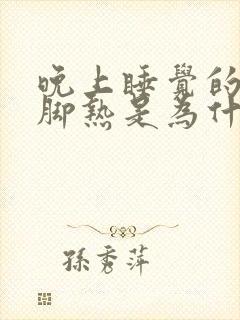 晚上睡覺的
腳熱是為什
孫秀萍